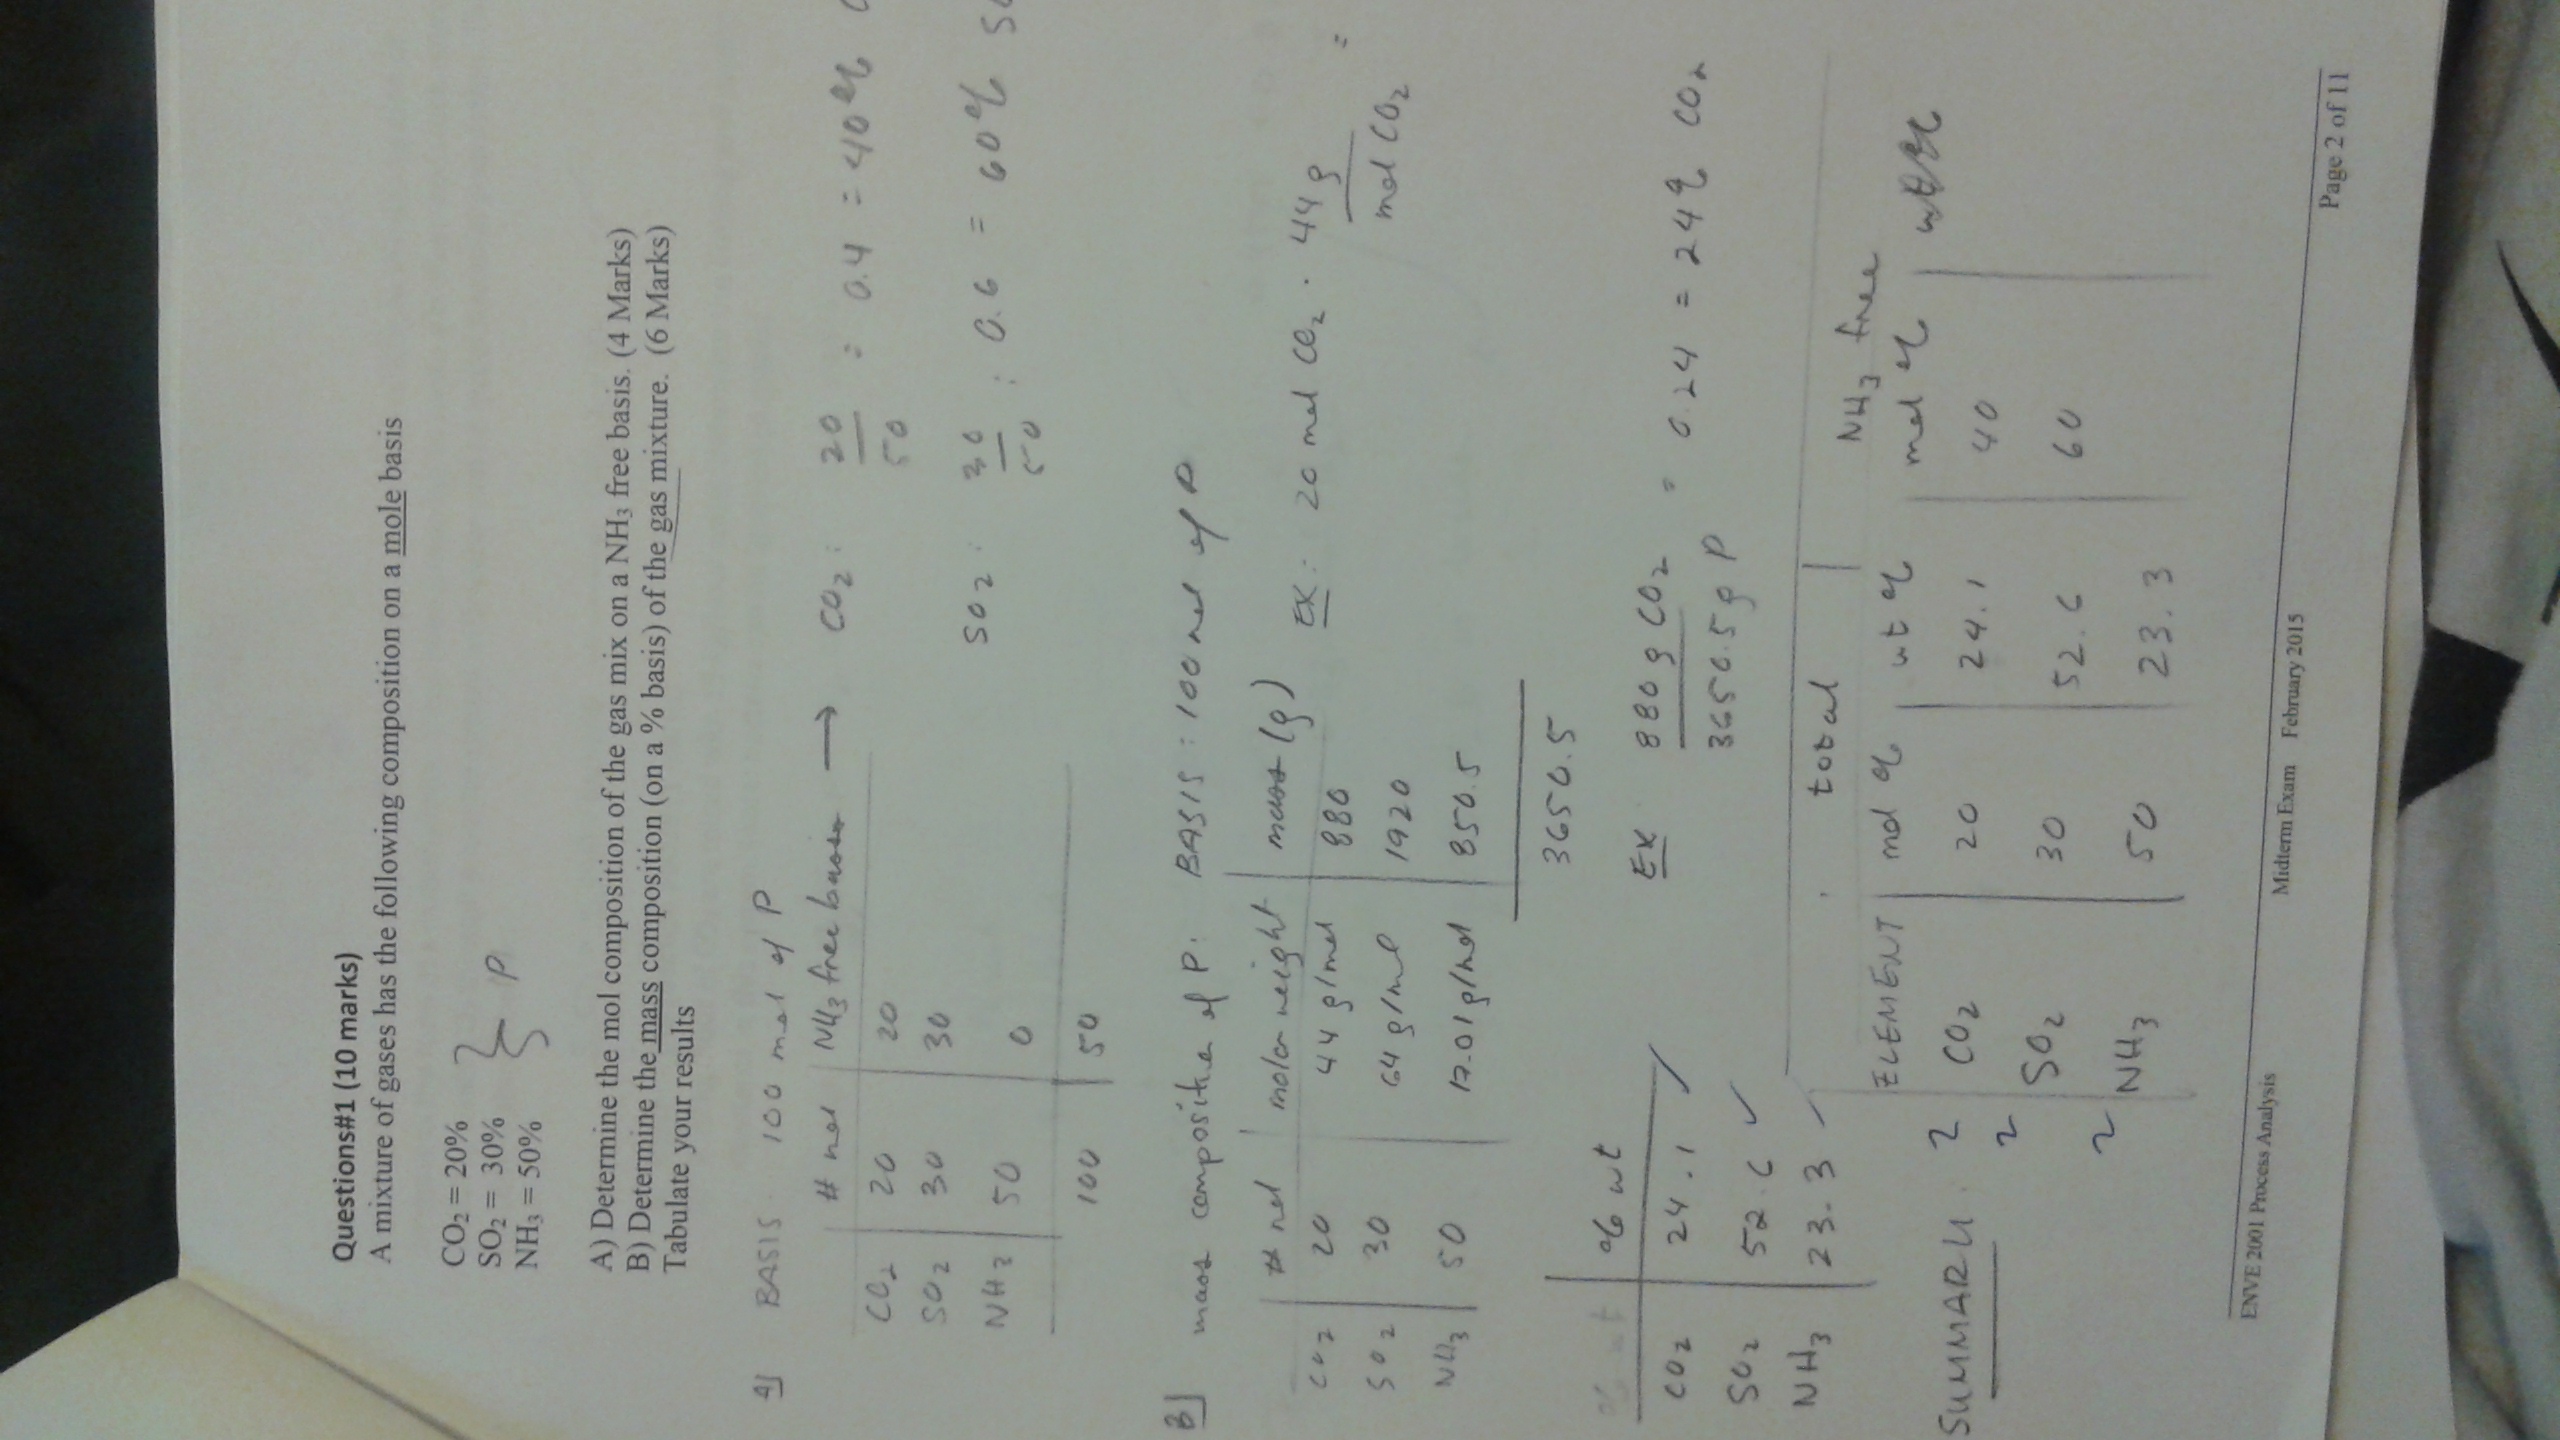 Questions#1 (10 marks)
A mixture of gases has the following composition on a mole basis
CO₂ = 20%
SO₂ = 30%
NH₃ = 50%
} P
A) Determine the mol composition of the gas mix on a NH₃ free basis. (4 Marks)
B) Determine the mass composition (on a % basis) of the gas mixture. (6 Marks)
Tabulate your results
A] BASIS 100 mol of P
# mol NH₃ free basis → CO₂: 20/50 = 0.4 = 40%
CO₂ 20 20
SO₂ 30 30 SO₂: 30/50 : 0.6 = 60%
NH₃ 50 0
100 50
B] mass composition of P: BASIS: 100 mol of P
# mol molar weight mass (g)
CO₂ 20 44 g/mol 880 EX: 20 mol CO₂ · 44 g/mol CO₂ =
SO₂ 30 64 g/mol 1920
NH₃ 50 17.01 g/mol 850.5
3650.5
% wt
CO₂ 24.1 EX 880 g CO₂/3650.5 g P = 0.24 = 24% CO₂
SO₂ 52.6
NH₃ 23.3
SUMMARY.
total NH₃ free
ELEMENT mol % wt % mol %
CO₂ 20 24.1 40
SO₂ 30 52.6 60
NH₃ 50 23.3
ENVE 2001 Process Analysis Midterm Exam February 2015 Page 2 of 11